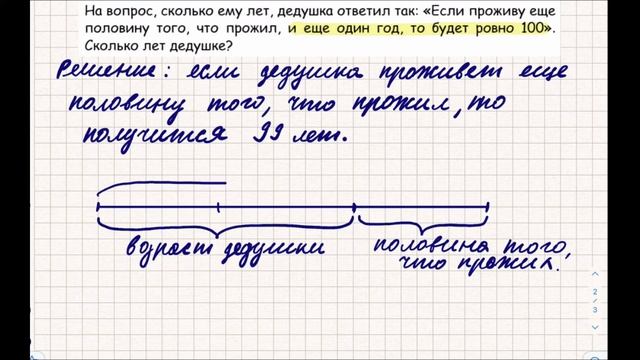 На вопрос, сколько ему лет, дедушка ответил так: «Если проживу еще
половину того, что прожил, и еще один год, то будет ровно 100».
Сколько лет дедушке?
Решение: если дедушка проживет еще
половину того, что прожил, то
получится 99 лет.
возраст дедушки
половина того,
что прожил.
2
/
3